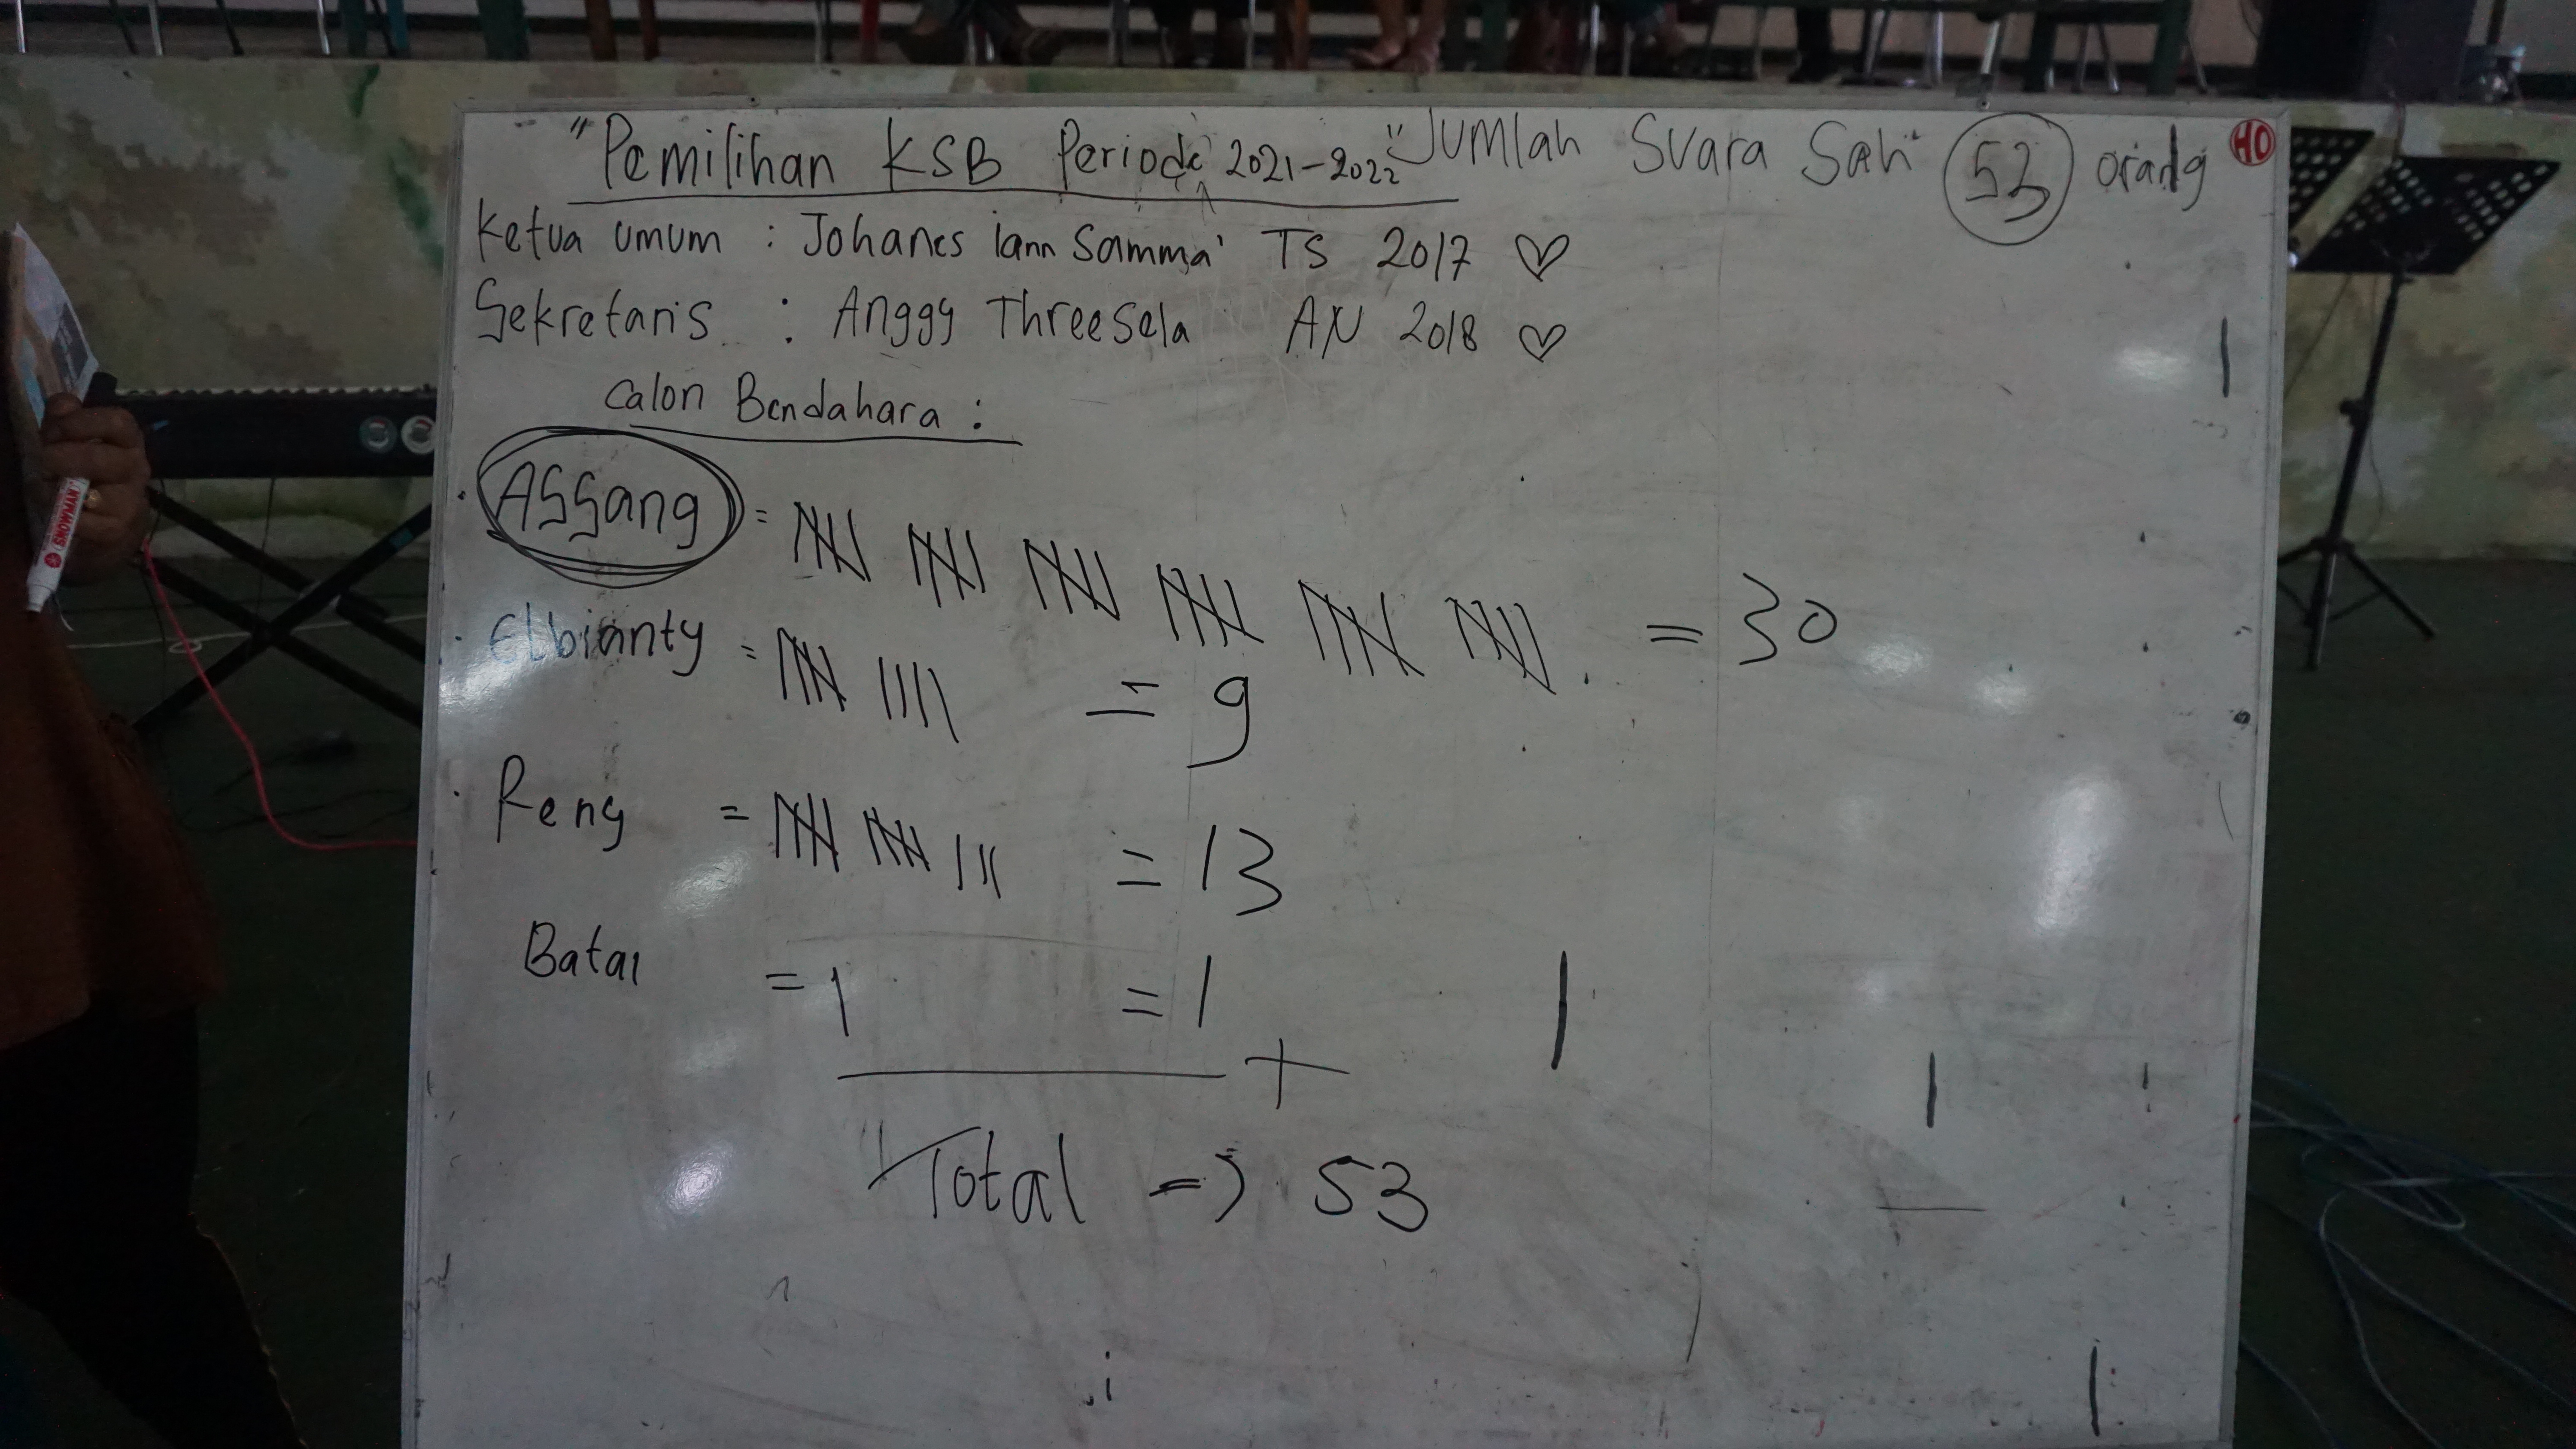 "Pemilihan KSB Periode 2021-2022" Jumlah Suara Sah 53 orang
HO
Ketua Umum : Johanes Iann Samma' TS 2017 ♡
Sekretaris : Anggy Threesela AN 2018 ♡
Calon Bendahara :
• Assang = 𝍸 𝍸 𝍸 𝍸 𝍸 𝍸 = 30
• Elbianty = 𝍸 |||| = 9
• Reny = 𝍸 𝍸 ||| = 13
Batal = 1 = 1
+
Total => 53
SNOWMAN